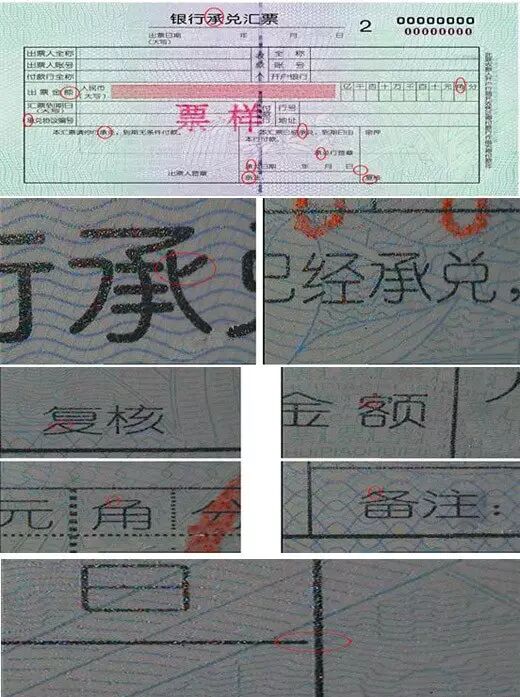 银行承兑汇票
2
00000000
00000000
出票日期
(大写)
年 月 日
出票人全称
全 称
出票人账号
账 号
付款行全称
开户银行
出票金额
人民币
(大写)
亿千百十万千百十元角分
汇票到期日
(大写)
行号
承兑协议编号
地址
票样
本汇票请你行承兑,到期无条件付款。
本汇票已经承兑,到期日由
本行付款。
密押
承兑行签章
承兑日期 年 月 日
出票人签章
复核
行承
已经承兑,
复核
金额
元角分
备注:
日